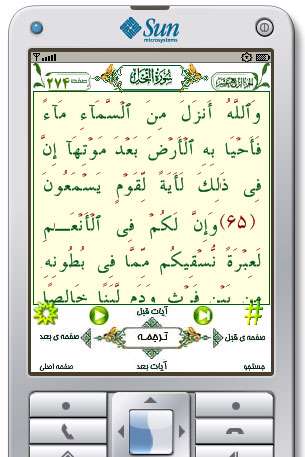 Sun
microsystems
سُورَةُ النَّحۡل
صفحه ۲۷۴
وَٱللَّهُ أَنزَلَ مِنَ ٱلسَّمَآءِ مَآءً
فَأَحۡيَا بِهِ ٱلۡأَرۡضَ بَعۡدَ مَوۡتِهَآ إِنَّ
فِى ذَٰلِكَ لَأٓيَةً لِّقَوۡمٍ يَسۡمَعُونَ
(۶۵) وَإِنَّ لَكُمۡ فِى ٱلۡأَنۡعَـٰمِ
لَعِبۡرَةً نُّسۡقِيكُم مِّمَّا فِى بُطُونِهِ
مِن بَيۡنِ فَرۡثٍ وَدَمٍ لَّبَنًا خَالِصًا
آیات قبل
صفحه ی قبل
ترجمه
صفحه ی بعد
جستجو
آیات بعد
صفحه اصلی